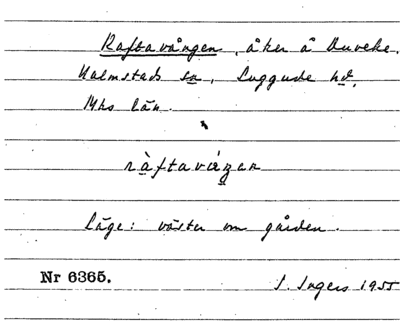 Raftavången, åker å Duveke.
Halmstads sn, Luggude hd,
Mhs län.
ràftavåŋen
Läge: väster om gården.
Nr 6365.
I. Ingers 1955